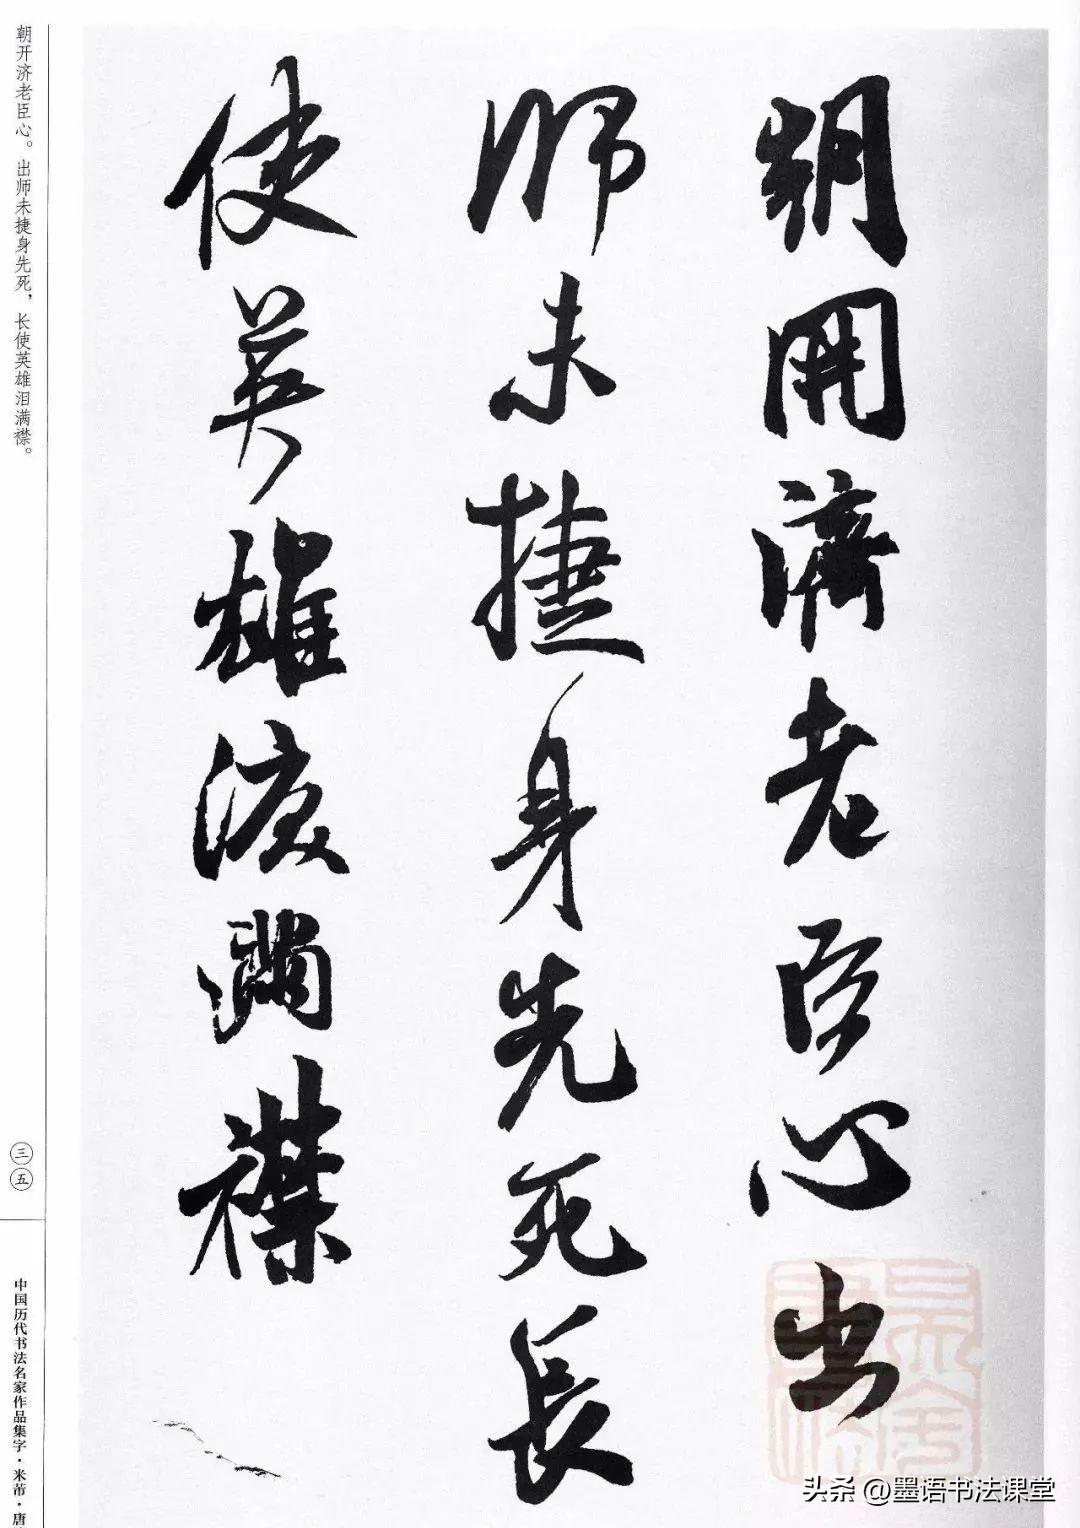 朝開濟老臣心出
師未捷身先死長
使英雄淚滿襟
朝开济老臣心。出师未捷身先死，长使英雄泪满襟。
三五
中国历代书法名家作品集字·米芾·唐
头条 @墨语书法课堂